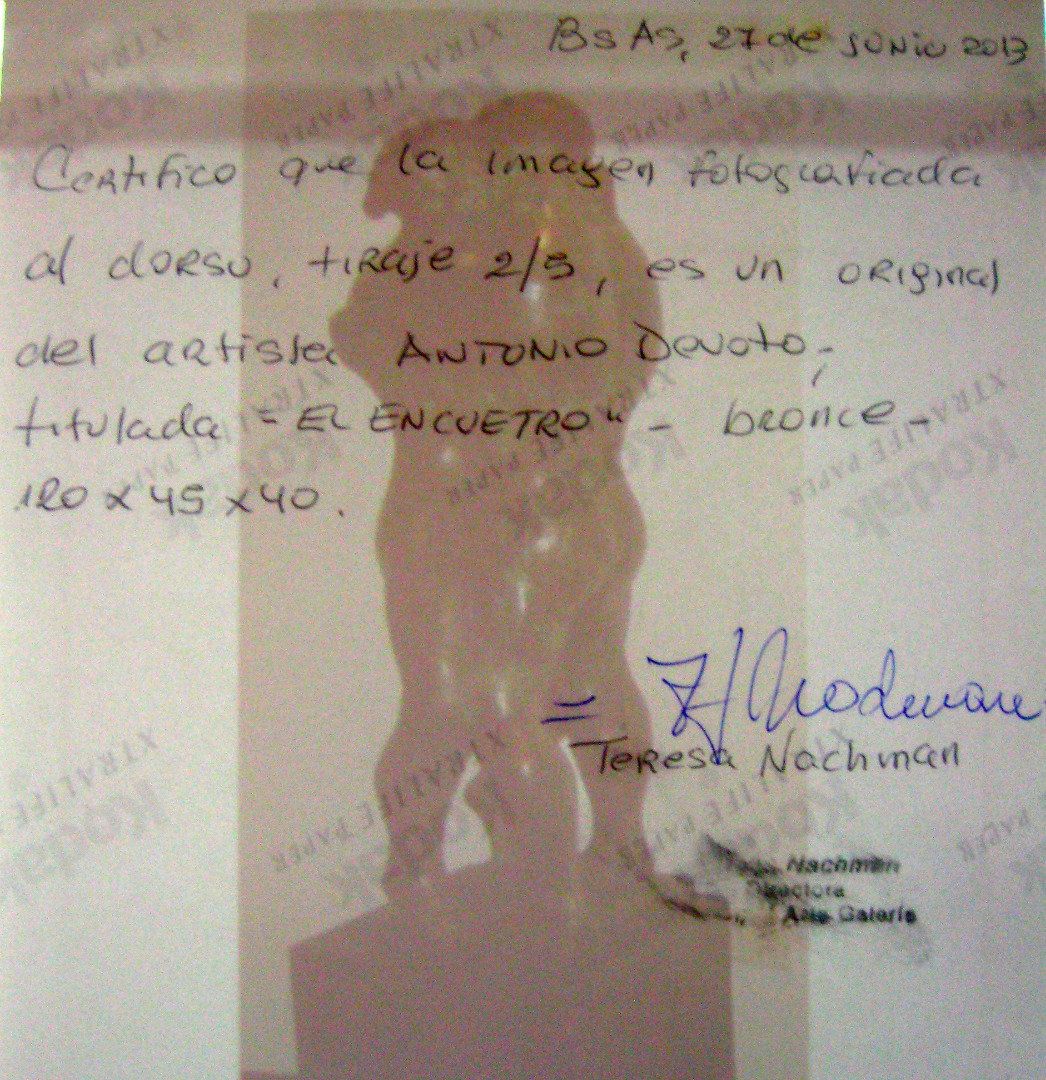 BsAs, 27 de junio 2013
Certifico que la imagen fotografiada
al dorso, tiraje 2/5, es un original
del artista ANTONIO Devoto,
titulada = EL ENCUETRO" - bronce -
120 x 45 x 40.
Teresa Nachman
Nachman
Directora
Arte Galería
XTRALIFE PAPER
Kodak